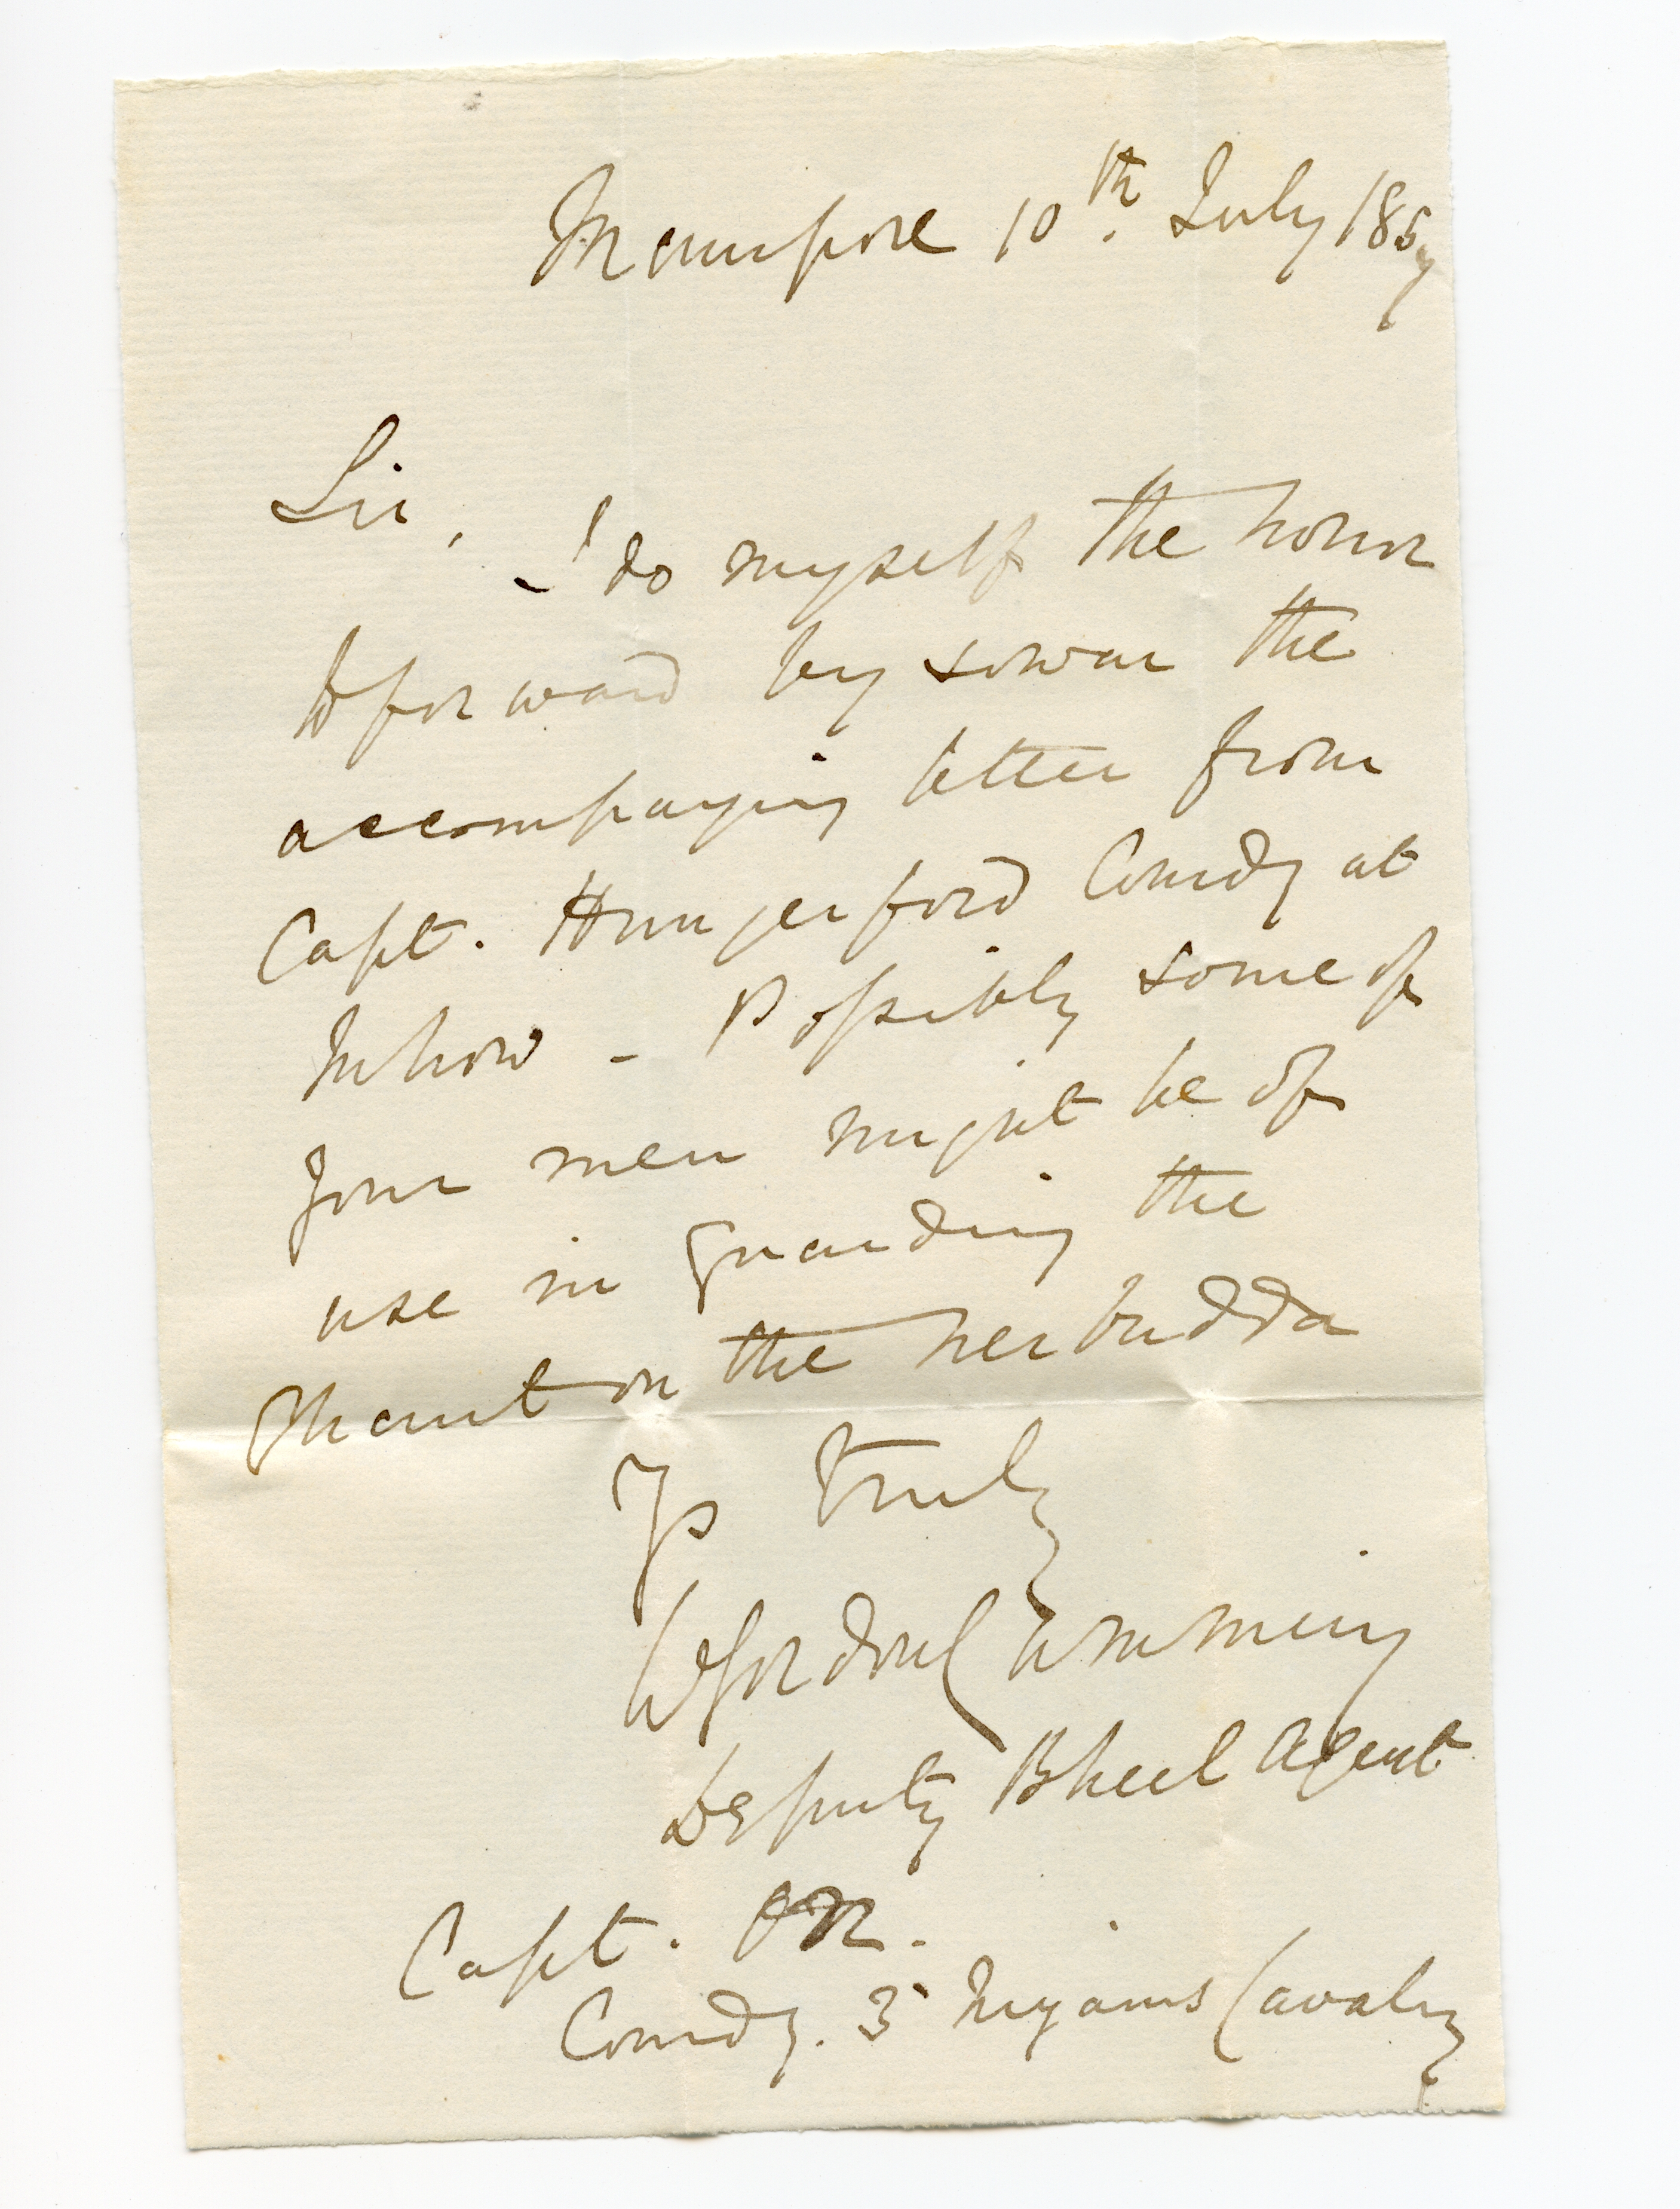 Maunpore 10th. July 1857
Sir,
I do myself the honor
to forward by sowar the
accompaying letter from
Capt. Hungerford Comdg at
Mhow - Possibly some of
your men might be of
use in guarding the
Ghaut on the Nerbudda
Yrs truly
W Gordon Cumming
Deputy Bheel Agent
Capt. Orr.
Comdg. 3 Nizams Cavalry